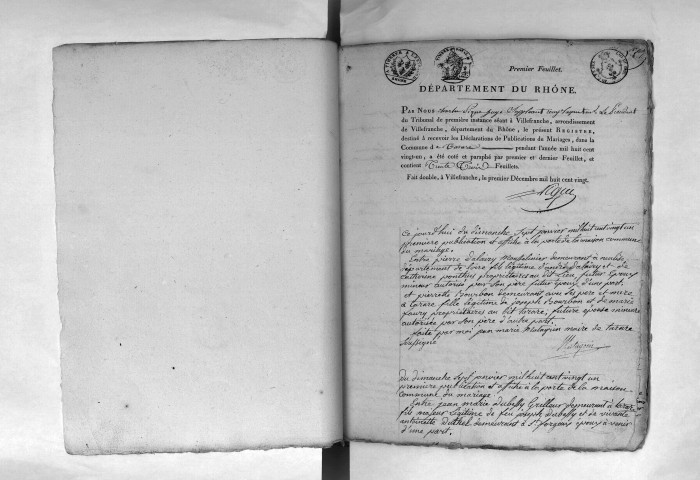 Premier Feuillet.
DÉPARTEMENT DU RHÔNE.
PAR NOUS juge Suppléant Le Président
du Tribunal de première instance séant à Villefranche, arrondissement
de Villefranche, département du Rhône, le présent REGISTRE,
destiné à recevoir les Déclarations de Publications du Mariages, dans la
Commune de Tarare pendant l'année mil huit cent
vingt-un, a été coté et paraphé par premier et dernier Feuillet, et
contient Trente Trois Feuillets.
Fait double, à Villefranche, le premier Décembre mil huit cent vingt.
ce jourd'hui du dimanche Sept janvier mil huit cent vingt un
première publication et affiche à la porte de la maison commune
du mariage
Entre pierre Mousselinier demeurant à
département de Loire fils légitime d'andré et de
catherine ponthus propriétaires au dit Lieu, futur Epoux
mineur autorisé par Son père futur Epoux d'une part
et pierrette Bourbon demeurant avec Ses père et mère
à tarare, fille Légitime de joseph Bourbon et de marie
propriétaires au dit tarare, future épouse mineure
autorisée par Son père d'autre part.
faite par moi jean marie Matagrin maire de tarare
Soussigné
Matagrin
Du dimanche Sept janvier mil huit cent vingt un
première publication et affiche à la porte de la maison
commune du mariage
Entre jean marie Dubessy demeurant à tarare
fils majeur Légitime de feu joseph Dubessy et de vivante
antoinette demeurant à St forgeux époux à venir
d'une part.